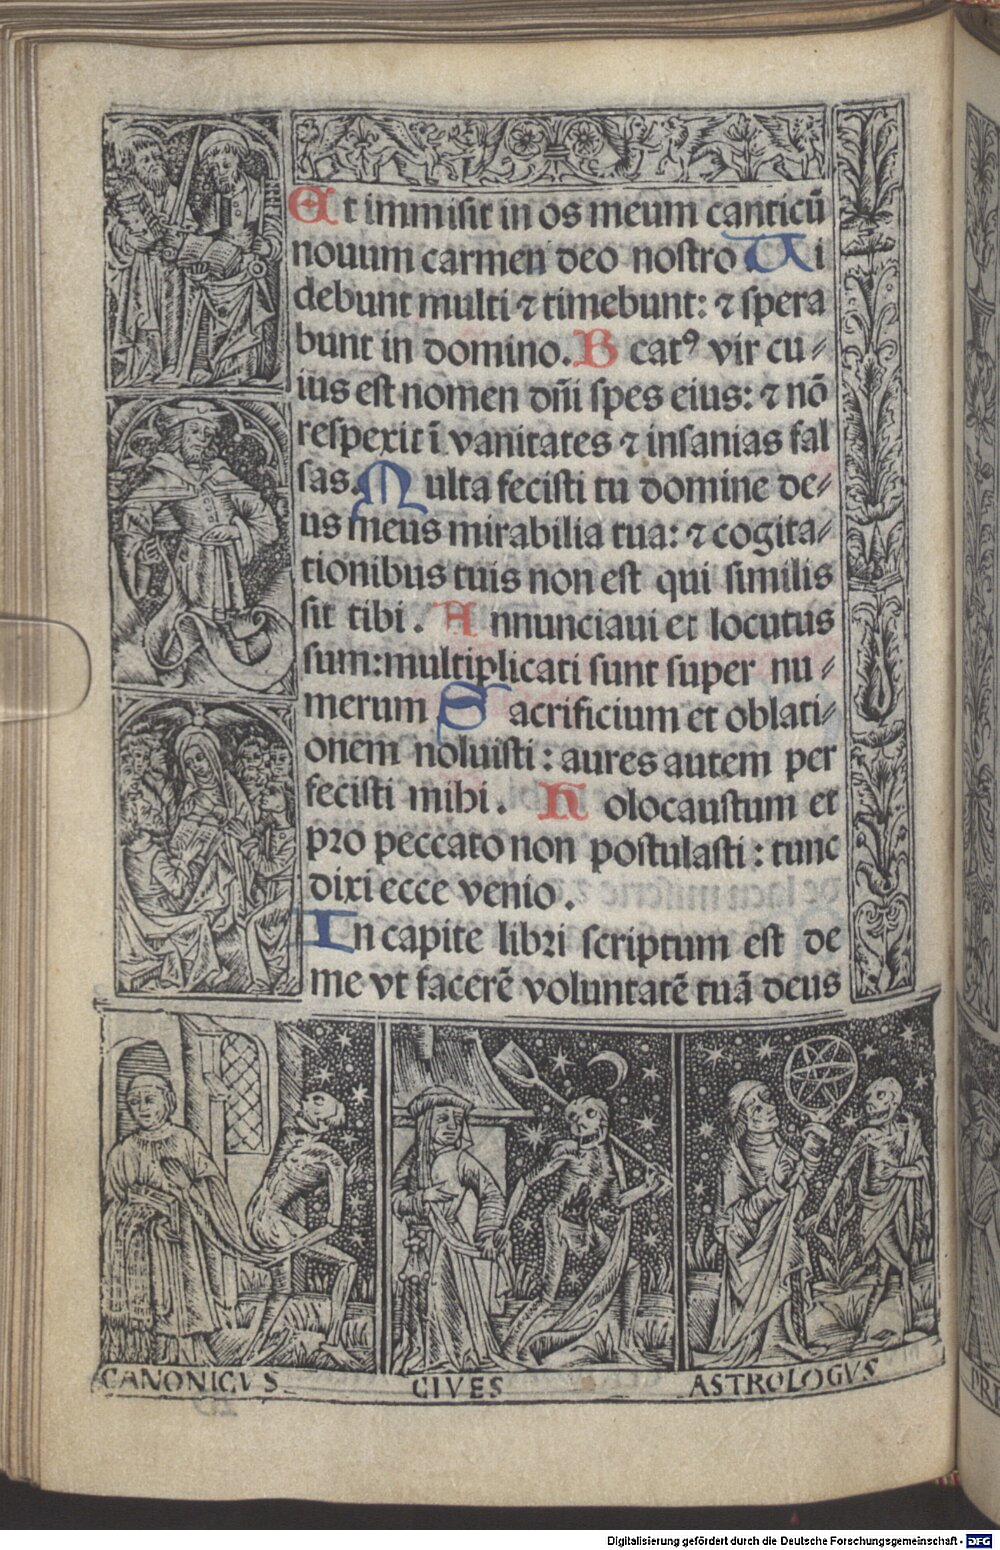 Et immisit in os meum canticū
nouum carmen deo nostro Ui
debunt multi ⁊ timebunt: ⁊ spera
bunt in domino. B eatꝰ vir cu⸗
ius est nomen dn̄i spes eius: ⁊ nō
respexit ī vanitates ⁊ insanias fal
sas. Multa fecisti tu domine de⸗
us meus mirabilia tua: ⁊ cogita⸗
tionibus tuis non est qui similis
sit tibi. Annunciaui et locutus
sum: multiplicati sunt super nu⸗
merum Sacrificium et oblati⸗
onem noluisti: aures autem per
fecisti mihi. Holocaustum et
pro peccato non postulasti: tunc
dixi ecce venio.
In capite libri scriptum est de
me vt facerē voluntatē tuā deus
CANONICVS CIVES ASTROLOGVS
Digitalisierung gefördert durch die Deutsche Forschungsgemeinschaft - DFG